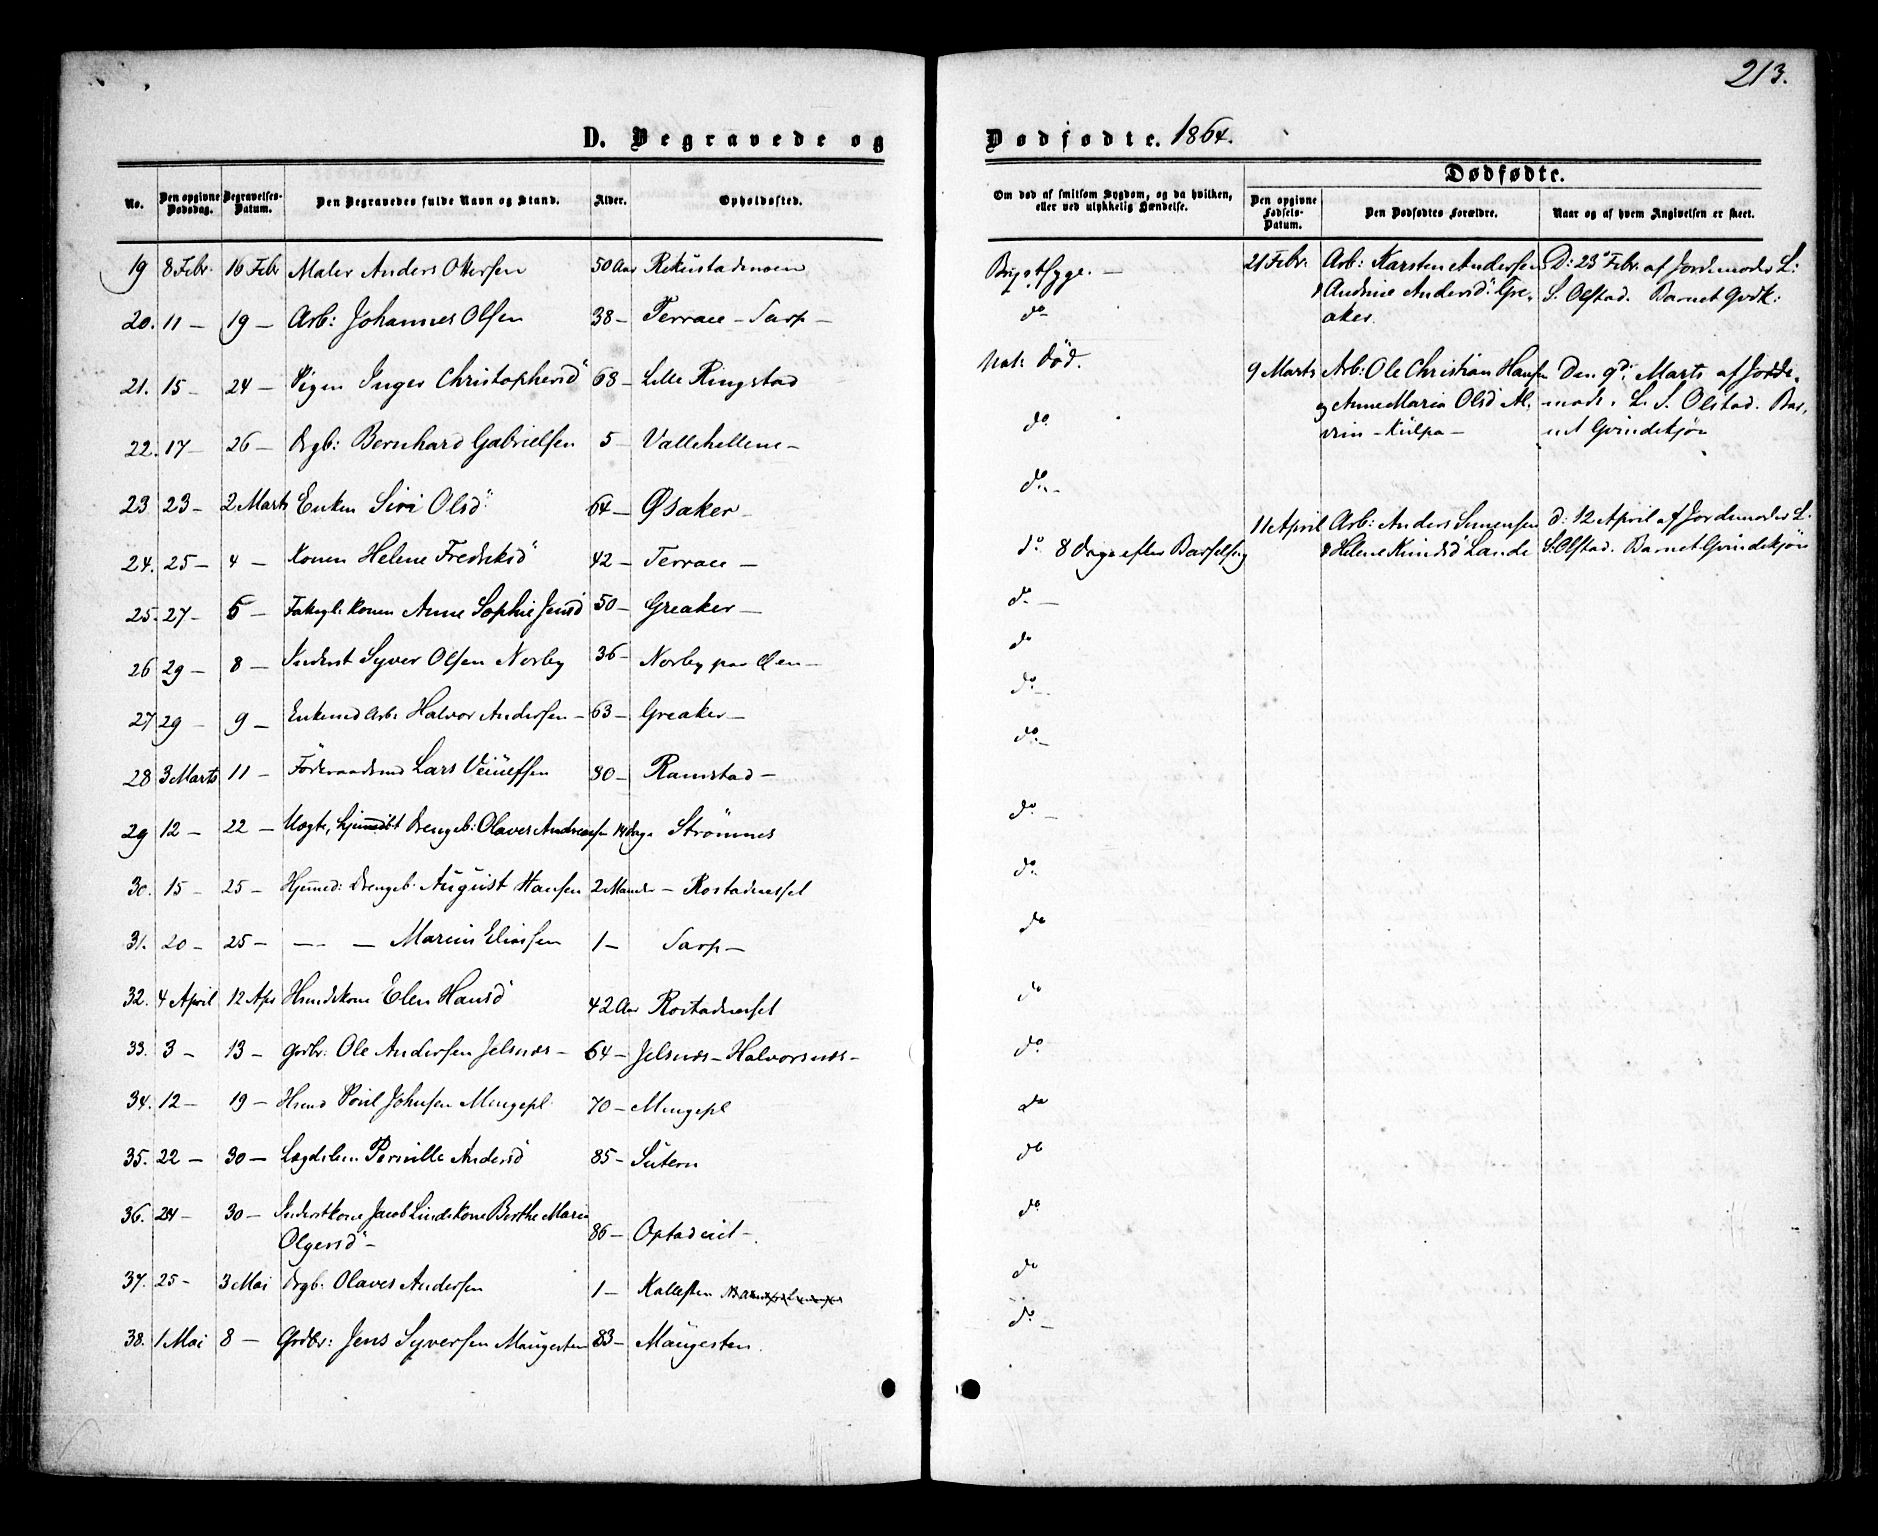 213.
D. Begravede og Dødfødte. 1864.
Dødfødte.
No.
Den opgivne Dødsdag.
Begravelses-Datum.
Den Begravedes fulde Navn og Stand.
Alder.
Opholdssted.
Om død af smitsom Sygdom, og da hvilken, eller ved ulykkelig Hændelse.
Den opgivne Fødsels-Datum.
Den Dødfødtes Forældre.
Naar og af hvem Angivelsen er skeet.
19 8 Febr. 16 Febr Maler Anders 50 Aar Brystsyge. —
20. 11 — 19 — Arb: Johannes Olsen 38 — Terrace — Sarp — do
21. 15 — 24 — Pigen Inger Christophersd 68 — Lille Ringstad Nat: död.
22. 17 — 26 — Drgb: Bernhard Gabrielsen 5 — Vallehellene — do
23 23 — 2 Marts Enken Siri Olsd 64 — Øsaker — do. —
24. 25 — 4 — Konen Helene Fredriksd 42 — Terrace — do 8 Dage efter
25. 27 — 5 — Konen Anne Sophie Jensd 50 — Greaker — do —
26 29 — 8 — Inderst Syver Olsen Norby 36 — Norby paa Øen — do
27 29 — 9 — Enkemd Arb: Halvor Andersen — 63 — Greaker — do. —
28 3 Marts 11 — Föderaadsmd Lars 80 — Ramstad — do. —
29 12 — 22 — Drengeb: Olaves Andreasen 14 Dage Strömnes do —
30. 15 — 25 — Hjemmed: Drengeb. August Hansen 2 Maaneder — do
31. 20 — 25 — — — Marius Eliasen 1 — Sarp — do
32. 4 April 12 Apr Husmdskone Elen Hansd 42 Aar do
33. 3 — 13 — Grdbr: Ole Andersen Jelsnæs — 64 — Jelsnæs — Halvorsnæs — do
34. 12 — 19 — Husmd Poul Johnsen Mingepl. 70 — Mingepl do
35. 22 — 30 — Lægdslem Pernille Andersd 85 — do
36. 24 — 30 — Inderstkone Jacob Lindekone Berthe Maria
Olgersd — 86 — Opstad — do
37. 25 — 3 Mai Drgb: Olaves Andersen 1 — do
38. 1 Mai 8 — Grdbr: Jens Syversen Maugesten 83 — Maugesten. do —
21 Febr. Arb: Karsten Andersen D: 23 Febr. af Jordemoder L:
& Andrine Andersd. Gre- S. Olstad. Barnet Gutk:
aker.
9 Marts Arb: Ole Christian Hansen Den 9de Marts af Jorde-
og Anne Maria Olsd moder L. S. Olstad. Bar-
— Kulpa — net Qvindekjøn
11 April Arb: Anders Simensen d: 12 April af Jordemoder L.
& Helene Knudsd Lande S. Olstad. Barnet Qvindekjøn